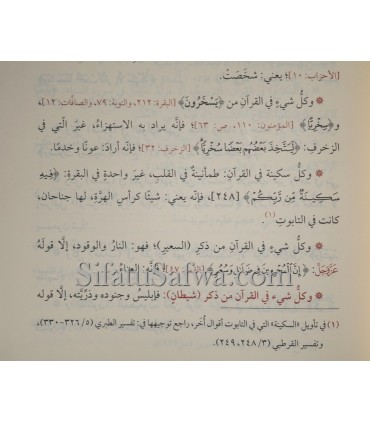 [الأحزاب: ١٠]؛ يعني: شخَصَتْ.
* وكلُّ شيءٍ في القرآن من ﴿يَسْخَرُونَ﴾ [البقرة: ٢١٢، والتوبة: ٧٩، والصافّات: ١٢]،
و﴿سِخْرِيًّا﴾ [المؤمنون: ١١٠، ص: ٦٣]؛ فإنَّه يراد به الاستهزاءُ، غيرَ الّتي في
الزخرف: ﴿لِّيَتَّخِذَ بَعْضُهُم بَعْضًا سُخْرِيًّا﴾ [الزخرف: ٣٢]؛ فإنَّه أراد: عونًا وخدمًا.
* وكلُّ سكينة في القرآن: طمأنينةٌ في القلب، غيرَ واحدةٍ في البقرة: ﴿فِيهِ
سَكِينَةٌ مِّن رَّبِّكُمْ﴾ [٢٤٨]، فإنَّه يعني: شيئًا كرأس الهرَّةِ، لها جناحان،
كانت في التابوتِ(١).
* وكلُّ شيءٍ في القرآن من ذكر (السعير)؛ فهو: النارُ والوقود، إلَّا قولَهُ
عَزَّوَجَلَّ: ﴿إِنَّ ٱلْمُجْرِمِينَ فِى ضَلَٰلٍ وَسُعُرٍ﴾ ٤٧]؛ فإنَّه: العناءُ.
SifatuSalwa.com
* وكلُّ شيء في القرآن من ذكر (شيطان): فإبليسُ وجنوده وذرِّيَّته، إلَّا قوله
(١) في تأويل «السكينة» التي في التابوت أقوال أُخر، راجع توجيهها في: تفسير الطبري (٥/ ٣٢٦-٣٣٠)،
وتفسير القرطبي (٣/ ٢٤٨، ٢٤٩).